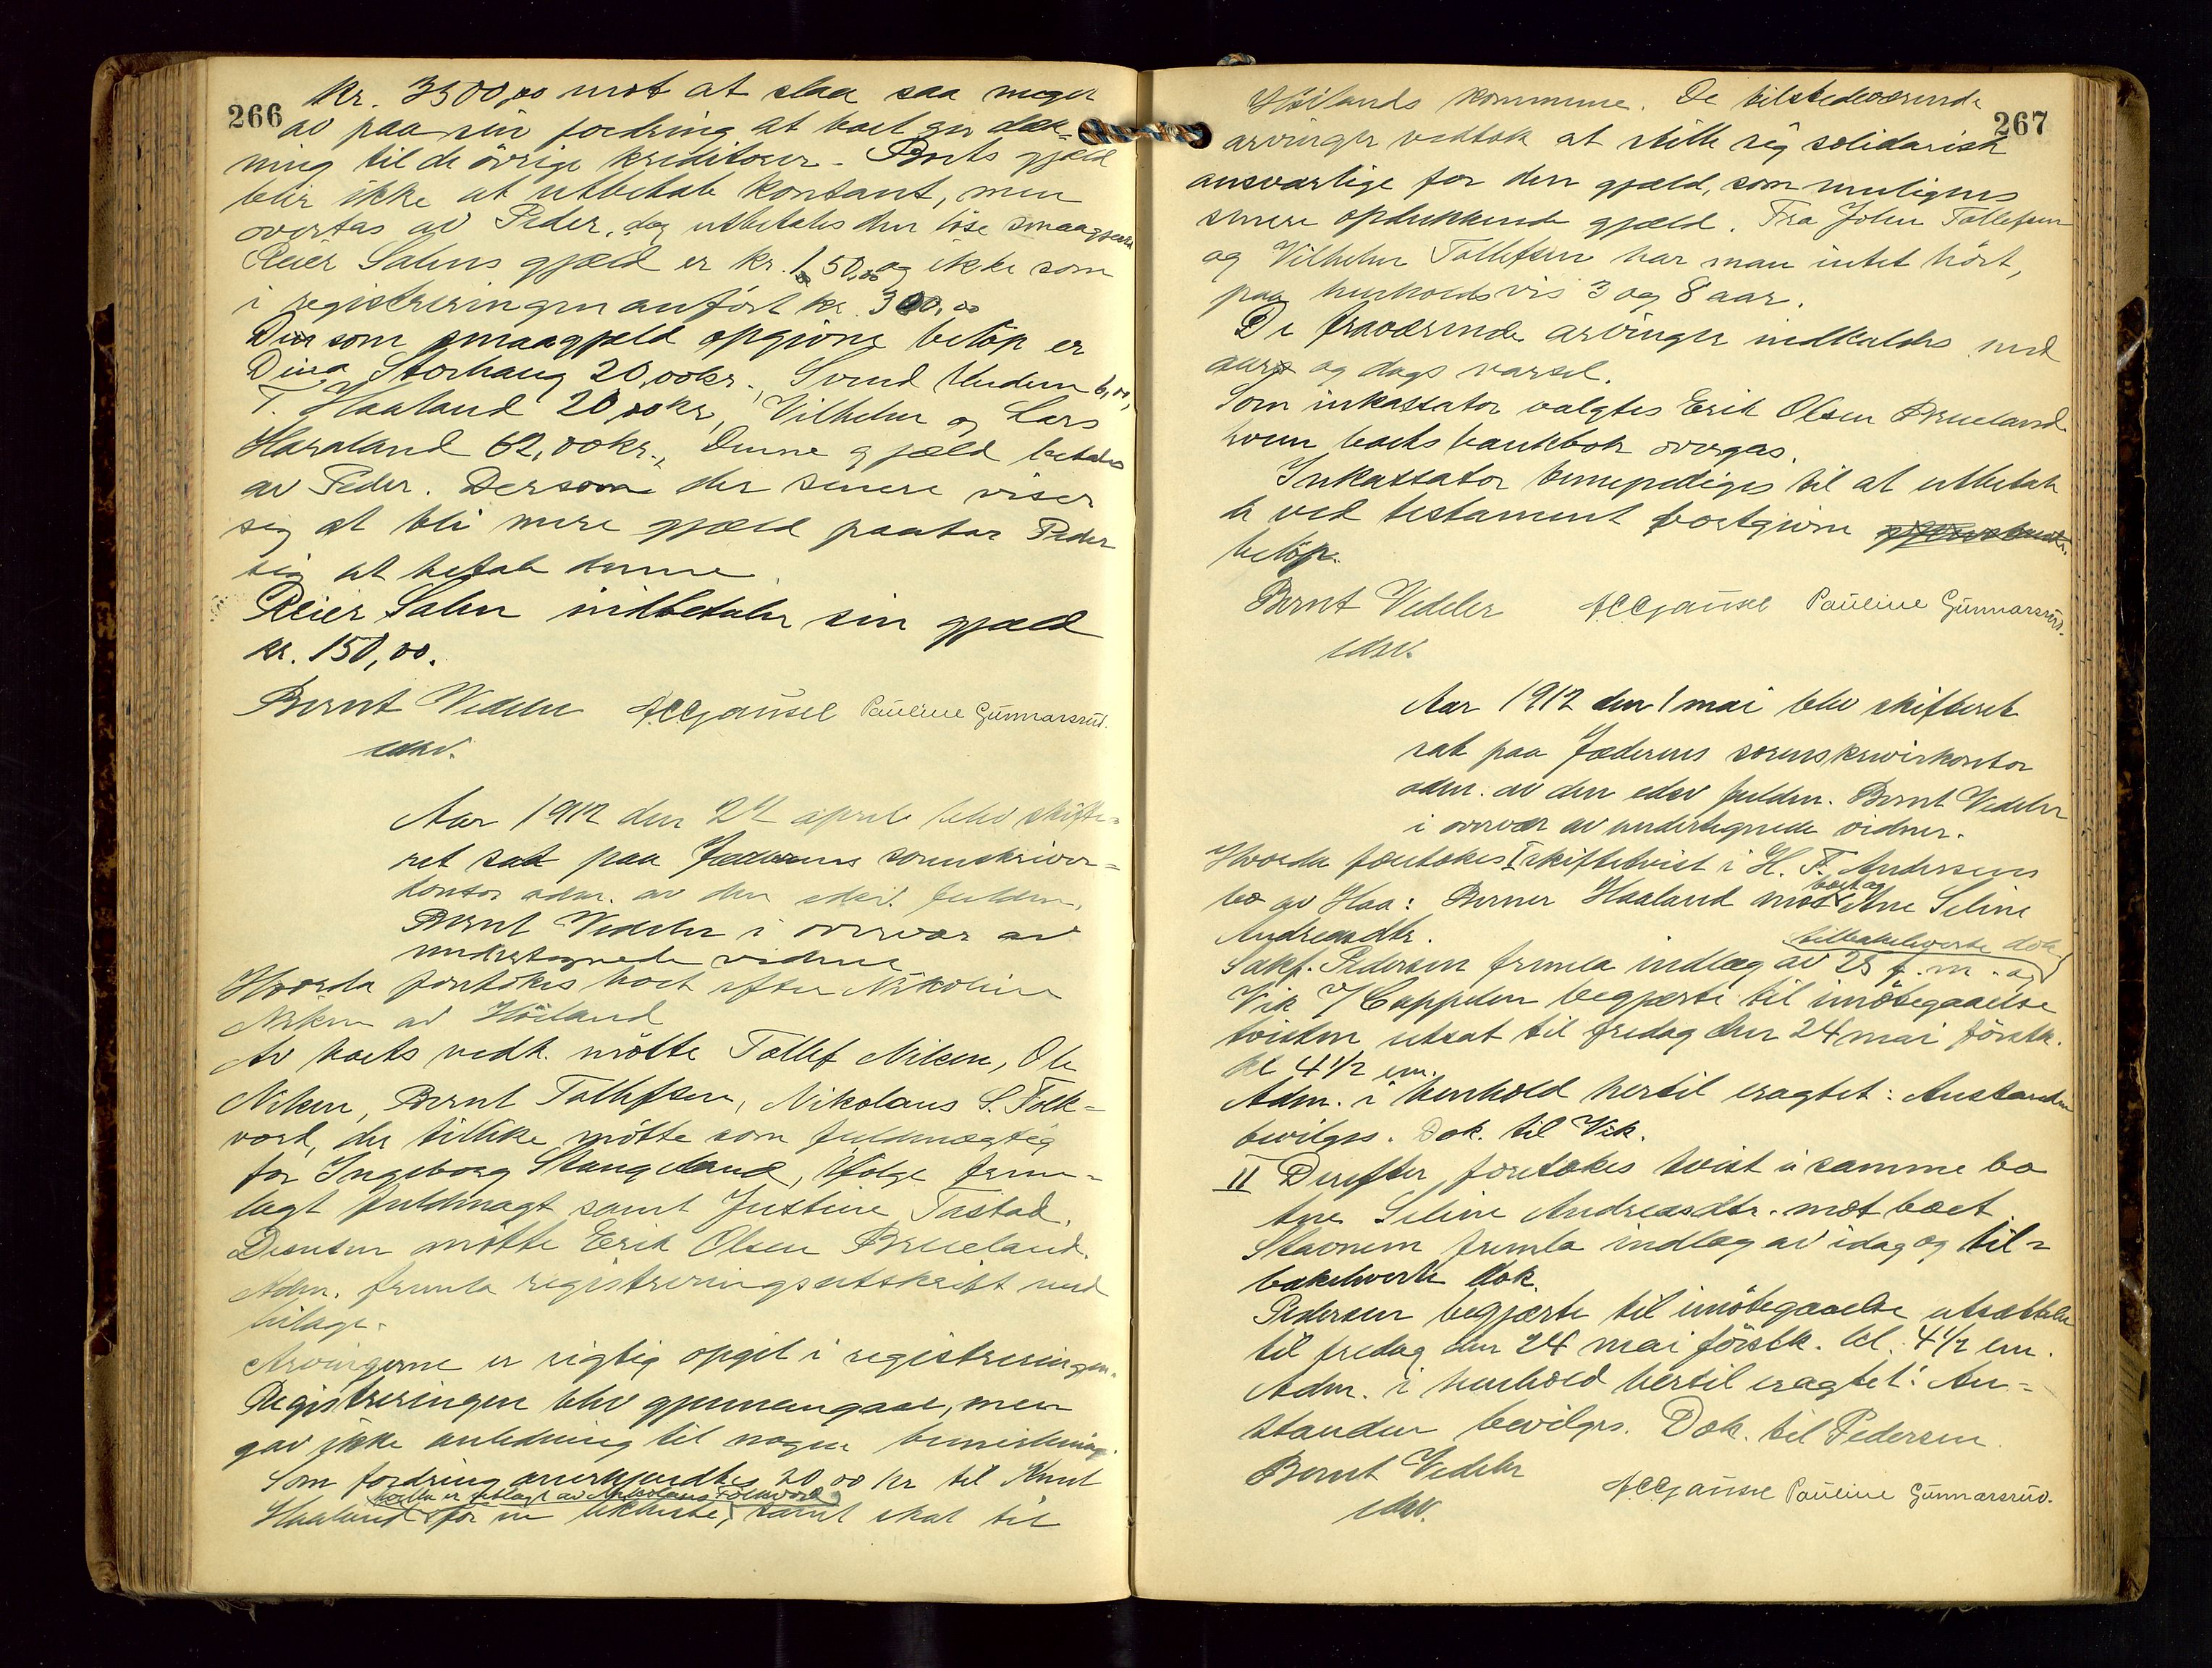 266
Kr. 3500,00 mot at slaa saa meget
av paa sin fordring at boet gir dæk-
ning til de övrige kreditorer. Boets gjæld
blir ikke at utbetale kontant, men
overtas av Peder, dog utbetales den löse smaagjæld
Reier Salens gjæld er kr. 150,00 og ikke som
i registreringen anfört kr. 300,00
Den som smaagjæld opgivne belöp er
Dina Storhaug 20,00kr., Svend 6,00,
T. Haaland 20,00kr, Vilhelm og Lars
Haaland 62,00kr., Denne gjæld betales
av Peder. Dersom der senere viser
sig at bli mere gjæld paatar Peder
sig at betale denne
Reier Salen indbetaler sin gjæld
kr. 150,00.
Bernt Vedeler A.C.Gausel Pauline Gunnarsrud.
edsv.
Aar 1912 den 24 april blev skifte-
ret sat paa Jæderens sorenskriver-
kontor adm. av den edsv. fuldm.
Bernt Vedeler i overvær av
undertegnede vidner
Hvorda foretokes boet efter Nikoline
Nilsen av Höiland
Av boets vedk. mötte Tollef Nilsen, Ole
Nilsen, Bernt Tollefsen, Nikolaus S. Folk-
vord, der tillike mötte som fuldmægtig
for Ingeborg Stangeland, ifölge frem-
lagt fuldmagt samt Justine Tastad.
Desuten mötte Erik Olsen Brueland.
Adm. fremla registreringsutskrift med
bilage.
Arvingerne er rigtig opgit i registreringen.
Registreringen blev gjennemgaat, men
gav ikke anledning til nogen bemerkning.
Som fordring anerkjendtes 20,00 kr til Knut
hvilke er utlagt av Nikolaus Folkvord
Haaland for en likkiste, samt skat til
267
Höilands kommune. De tilstedeværende
arvinger vedtok at stille sig solidarisk
ansvarlige for den gjæld, som muligens
senere opdukkende gjæld. Fra John Tollefsen
og Vilhelm Tollefsen har man intet hört,
paa henholdsvis 3 og 8 aar.
De fraværende arvinger indkaldes med
aars og dags varsel.
Som inkassator valgtes Erik Olsen Brueland
hvem boets bankbok overgas.
Inkassator bemyndiges til at utbetale
de ved testament bortgivne
belöp.
Bernt Vedeler A.C.Gausel Pauline Gunnarsrud.
edsv.
Aar 1912 den 1 mai blev skifteret
sat paa Jæderens sorenskriverkontor
adm. av den edsv fuldm. Bernt Vedeler
i overvær av undertegnede vidner.
Hvorda foretokes I skiftetvist i H. T. Andersens
bo av Haa: Berner Haaland mot boet og Ane Seline
Andreasdtr.
Sakf. Pedersen fremla indlæg av 25 f. m. og tilbakeleverte dok
Vik v/ Cappelen begjærte til imötegaaelse
tvisten utsat til fredag den 24 mai förstk.
kl 4 1/2 em.
Adm. i henhold hertil eragtet: Anstanden
bevilges. Dok. til Vik.
II Derefter foretokes tvist i samme bo
Ane Seline Andreasdtr. mot boet.
Stavnem fremla indlæg av idag og til-
bakeleverte dok.
Pedersen begjærte til imötegaaelse utsættelse
til fredag den 24 mai förstk. kl. 4 1/2 em.
Adm. i henhold hertil eragtet: An-
standen bevilges. Dok. til Pedersen.
Bernt Vedeler A.C.Gausel Pauline Gunnarsrud.
edsv.